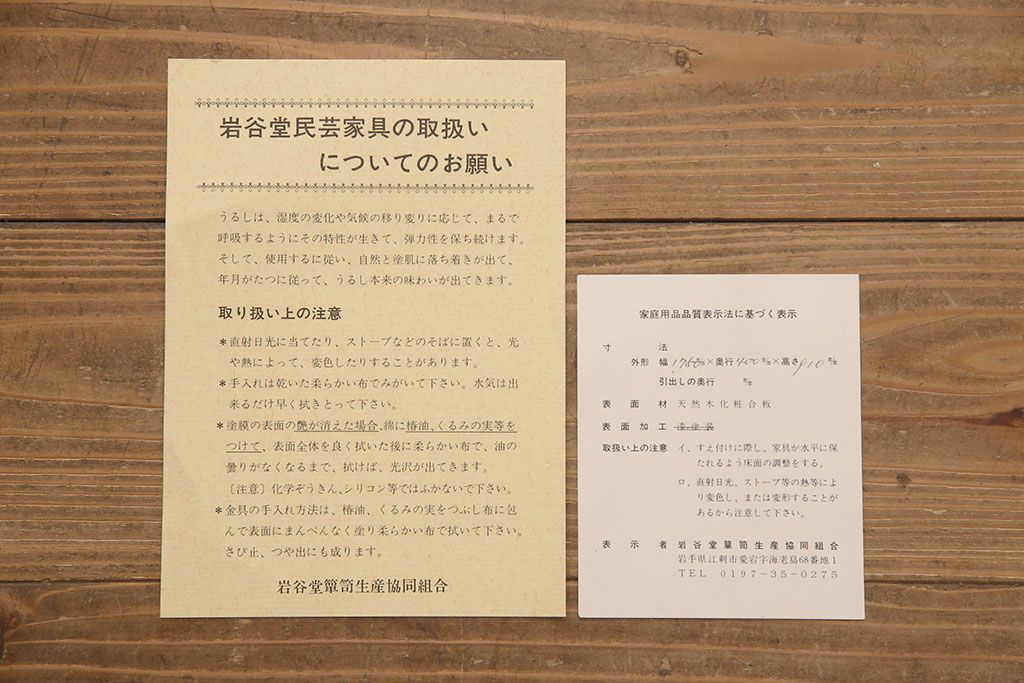 岩谷堂民芸家具の取扱い
についてのお願い
うるしは、湿度の変化や気候の移り変りに応じて、まるで
呼吸するようにその特性が生きて、弾力性を保ち続けます。
そして、使用するに従い、自然と塗肌に落ち着きが出て、
年月がたつに従って、うるし本来の味わいが出てきます。
取り扱い上の注意
*直射日光に当てたり、ストーブなどのそばに置くと、光
や熱によって、変色したりすることがあります。
*手入れは乾いた柔らかい布でみがいて下さい。水気は出
来るだけ早く拭きとって下さい。
*塗膜の表面の艶が消えた場合、綿に椿油、くるみの実等を
つけて、表面全体を良く拭いた後に柔らかい布で、油の
曇りがなくなるまで、拭けば、光沢が出てきます。
〔注意〕化学ぞうきん、シリコン等ではふかないで下さい。
*金具の手入れ方法は、椿油、くるみの実をつぶし布に包
んで表面にまんべんなく塗り柔らかい布で拭いて下さい。
さび止、つや出にも成ります。
岩谷堂簞笥生産協同組合
家庭用品品質表示法に基づく表示
寸法
外形 幅1780㎜×奥行400㎜×高さ910㎜
引出しの奥行 ㎜
表面材 天然木化粧合板
表面加工 漆塗装
取扱い上の注意 イ、すえ付けに際し、家具が水平に保
たれるよう床面の調整をする。
ロ、直射日光、ストーブ等の熱等によ
り変色し、または変形することが
あるから注意して下さい。
表示者 岩谷堂簞笥生産協同組合
岩手県江刺市愛宕字海老島68番地1
TEL 0197-35-0275